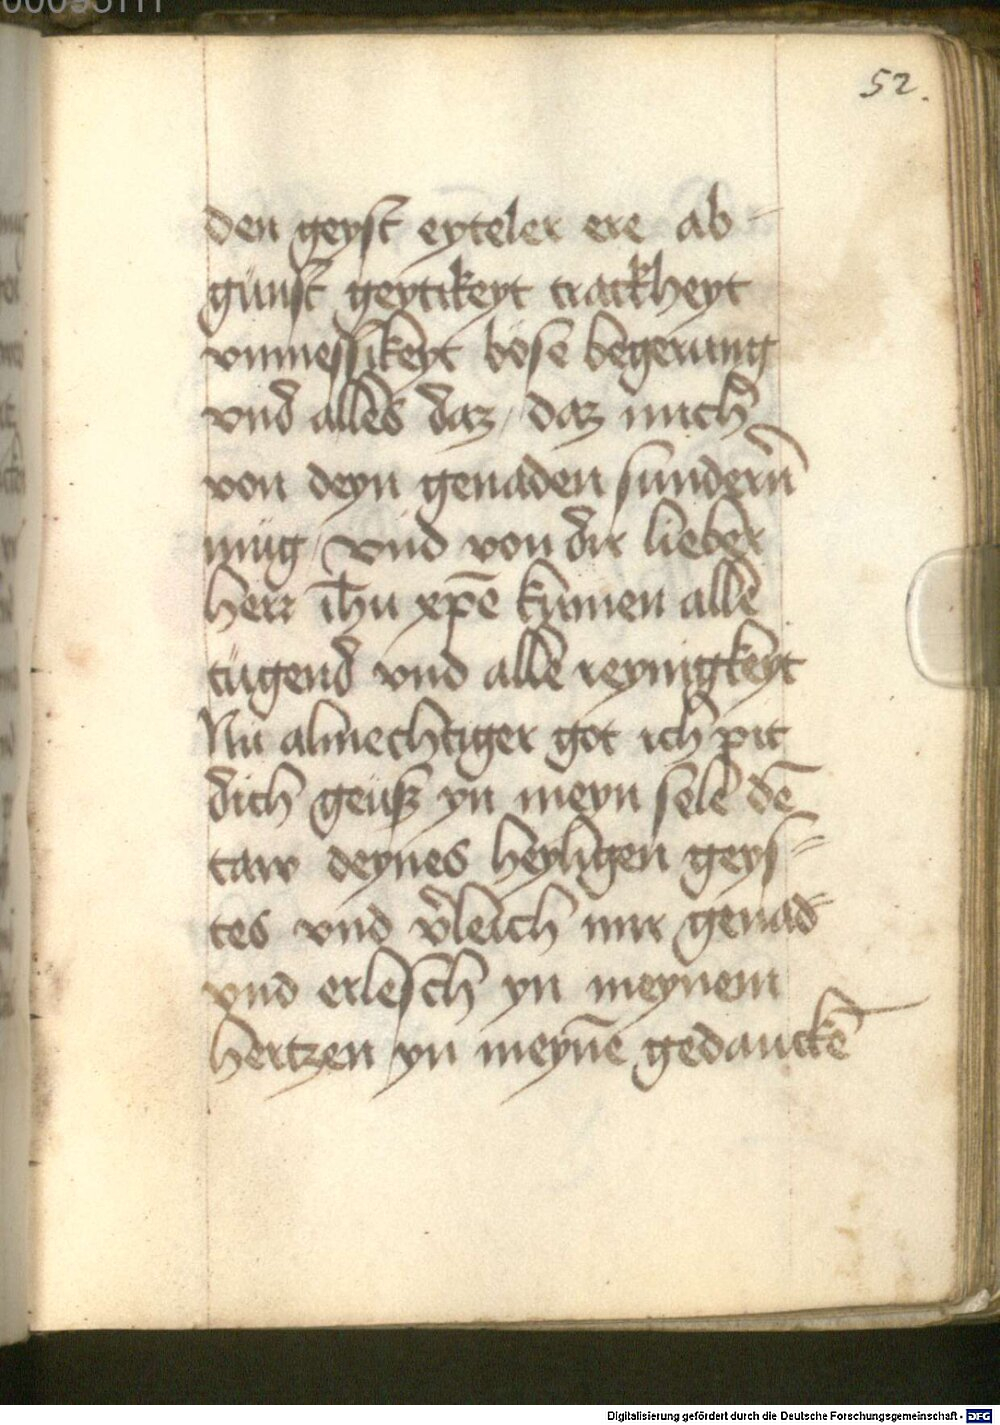 52.
den geyst eyteler ere ab-
günst geytikeyt trackheyt
vnmessikeyt böse begerung
vnd alles daz / daz mich
von deyn genaden sundern̄
müg / vnd von dir lieber
herr ih̄u xp̄e kūmen alle
tugend vnd alle reynigkeyt
Nu almechtiger got ich pit
dich geuß yn meyn sele dē
taw deynes heyligen geys-
tes vnd v̄leich mir genad
vnd erlesch yn meynem
hertzen yn meynē gedanckē
Digitalisierung gefördert durch die Deutsche Forschungsgemeinschaft - DFG